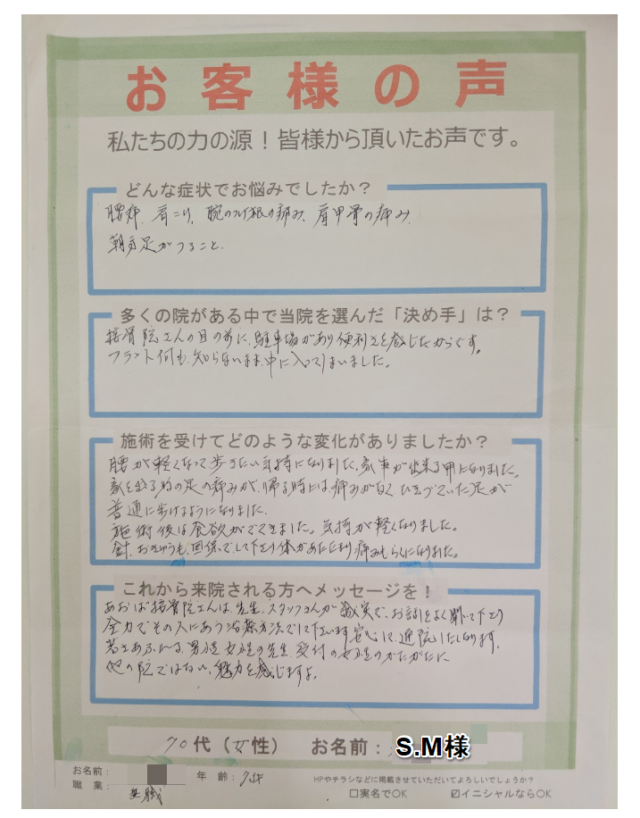 お客様の声
私たちの力の源!皆様から頂いたお声です。
どんな症状でお悩みでしたか?
腰痛、肩こり、腕の付根の痛み、肩甲骨の痛み、
朝方足がつること、
多くの院がある中で当院を選んだ「決め手」は?
接骨院さんの目の前に、駐車場があり便利さを感じたからです。
フラット何も知らないまま、中に入ってしまいました。
施術を受けてどのような変化がありましたか?
腰が軽くなって歩きたい気持になりました、家事が出来る様になりました。
家を出る時の足の痛みが、帰る時には痛みがなく ひきづっていた足が
普通に歩けるようになりました。
施術後は食欲がでてきました。気持が軽くなりました。
針、おきゅうも、して下さり体があたたまり痛みもらくになりました。
これから来院される方へメッセージを!
あおば接骨院さんは、先生、スタッフさんが誠実で、お話をよく聞いて下さり
全力でその人にあう治療方法でして下さいます。安心して、通院いたしております。
若さあふれる、男性、女性の先生、受付の女性のかたがたに
他の院ではない、魅力を感じますよ。
70代(女性) お名前: S.M様
お名前:
年齢:
職業: 無職
HPやチラシなどに掲載させていただいてよろしいでしょうか?
□実名でOK ☑イニシャルならOK